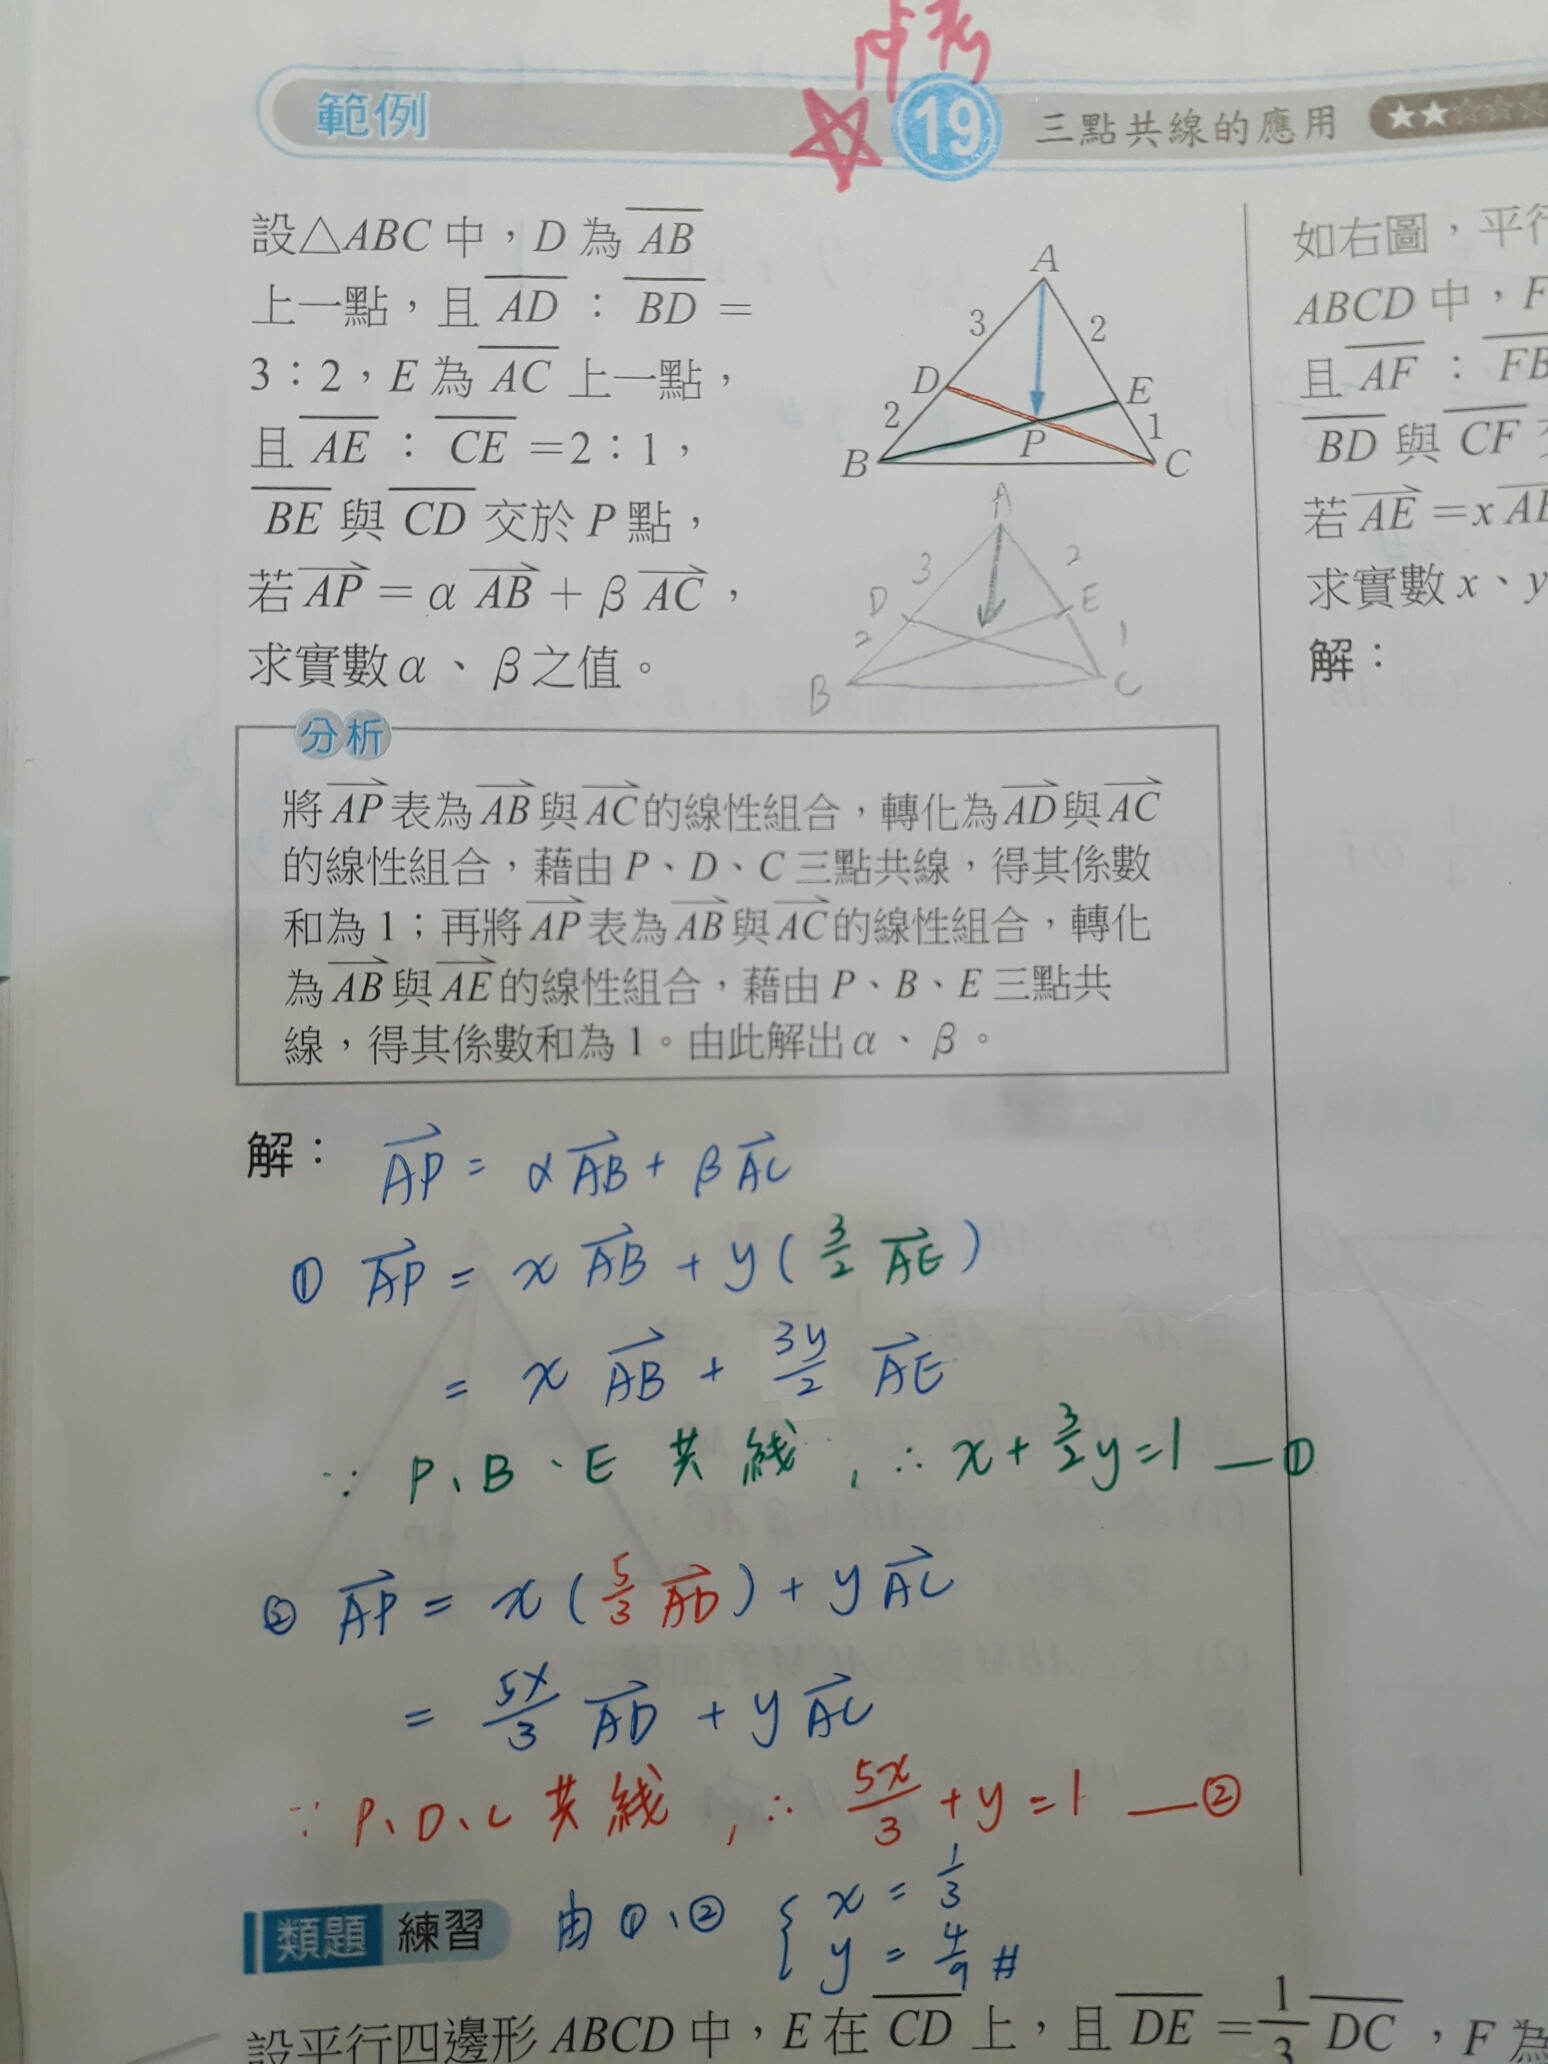 必考
範例 19 三點共線的應用 ★★☆☆☆
設△ABC 中，D 為 AB
上一點，且 AD：BD＝
3：2，E 為 AC 上一點，
且 AE：CE＝2：1，
BE 與 CD 交於 P 點，
若 AP＝α AB＋β AC，
求實數 α、β 之值。
A
3
2
D
E
2
1
B
P
C
A
3
2
D
E
2
1
B
C
分析
將 AP 表為 AB 與 AC 的線性組合，轉化為 AD 與 AC
的線性組合，藉由 P、D、C 三點共線，得其係數
和為 1；再將 AP 表為 AB 與 AC 的線性組合，轉化
為 AB 與 AE 的線性組合，藉由 P、B、E 三點共
線，得其係數和為 1。由此解出 α、β。
解：AP = αAB + βAC
① AP = x AB + y ( 3/2 AE )
= x AB + 3y/2 AE
∵ P、B、E 共線，∴ x + 3/2 y = 1 —①
② AP = x ( 5/3 AD ) + y AC
= 5x/3 AD + y AC
∵ P、D、C 共線，∴ 5x/3 + y = 1 —②
類題 練習
由①、② { x = 1/3
y = 4/9 #
設平行四邊形 ABCD 中，E 在 CD 上，且 DE＝1/3 DC，F 為
如右圖，平行
ABCD 中，F
且 AF：FB
BD 與 CF
若 AE＝x AB
求實數 x、y
解：